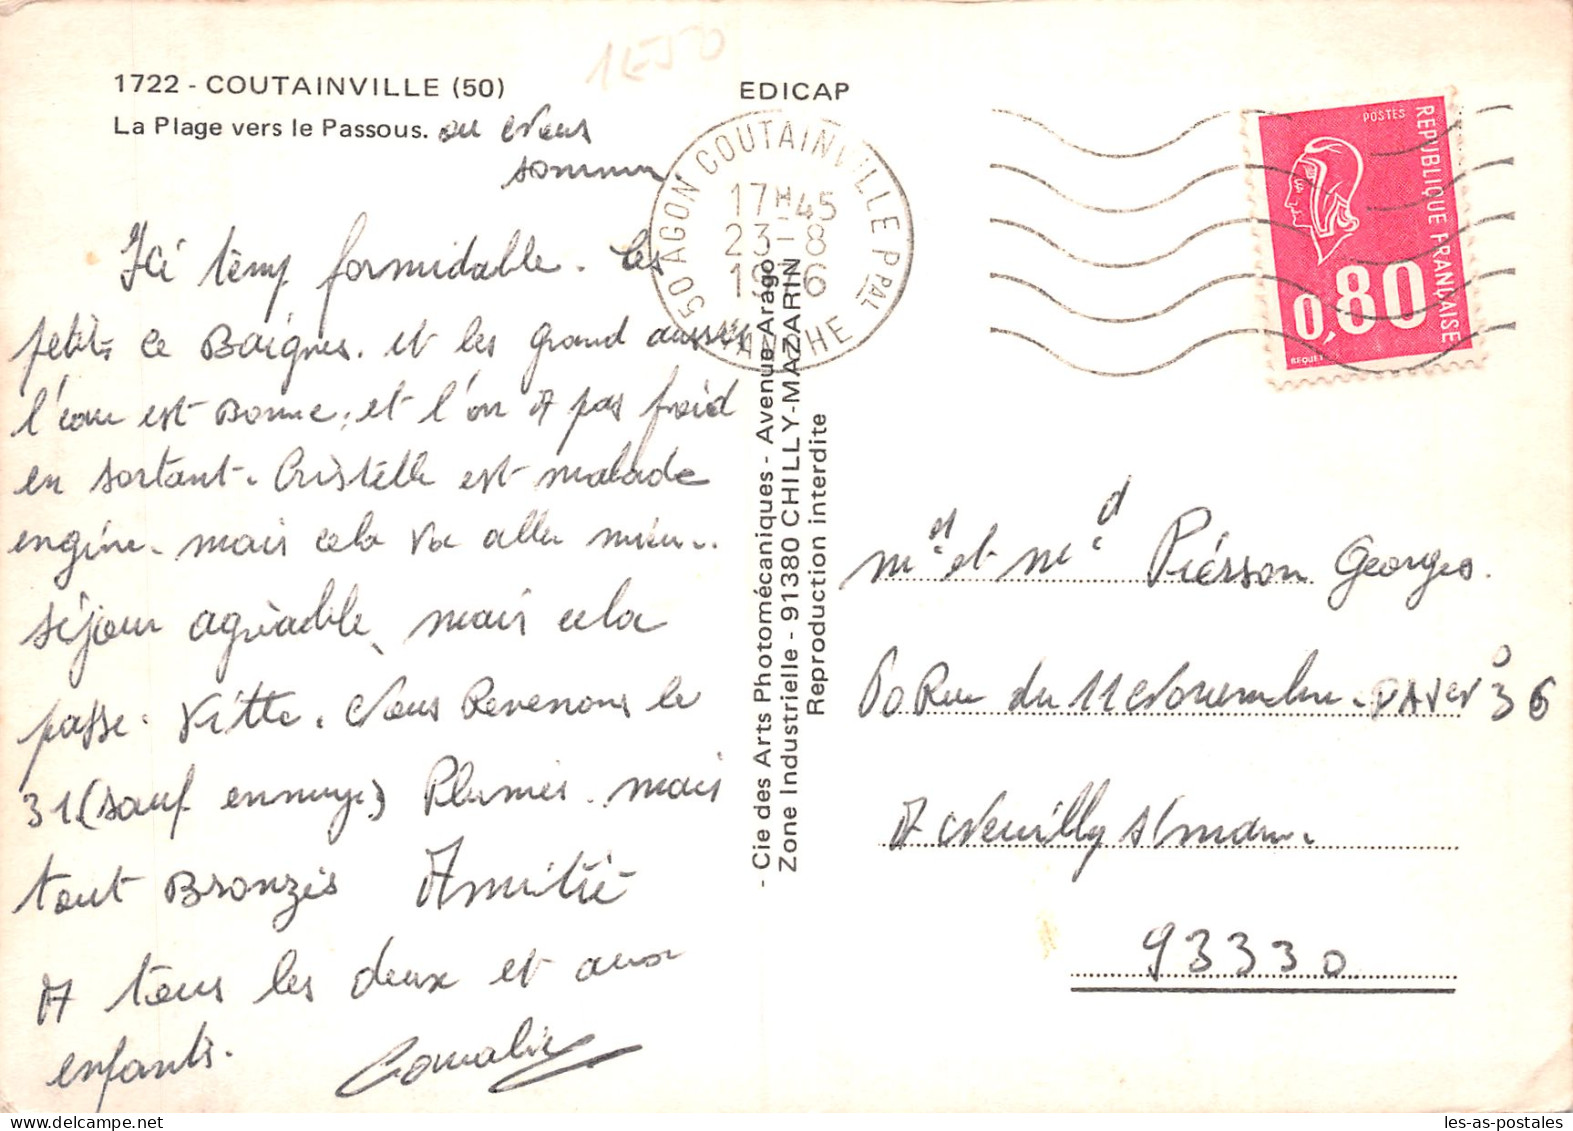 1E50
1722 - COUTAINVILLE (50)
La Plage vers le Passous. ou Nous
sommes
EDICAP
50 AGON COUTAINVILLE PPAL
17H45
23-8
1976
MANCHE
POSTES
REPUBLIQUE FRANÇAISE
0,80
BEQUET
Ici temp formidable. Les
petits ce Baignes. et les grand aussi
l'eau est Bonne, et l'on A pas froid
en sortant. Cristelle est malade
engine. mais cela va aller mieux.
séjour agréable mais cela
passe. Vitte. Nous Revenons le
31 (sauf ennuye) Plumés. mais
tout Bronzés Amitié
A tous les deux et aux
enfants.
- Cie des Arts Photomécaniques - Avenue Arago
Zone Industrielle - 91380 CHILLY-MAZARIN
Reproduction interdite
Pierson Georges.
60 Rue du 11 Novembre. PAV 36
A Neuilly s/marne
93330
les-as-postales